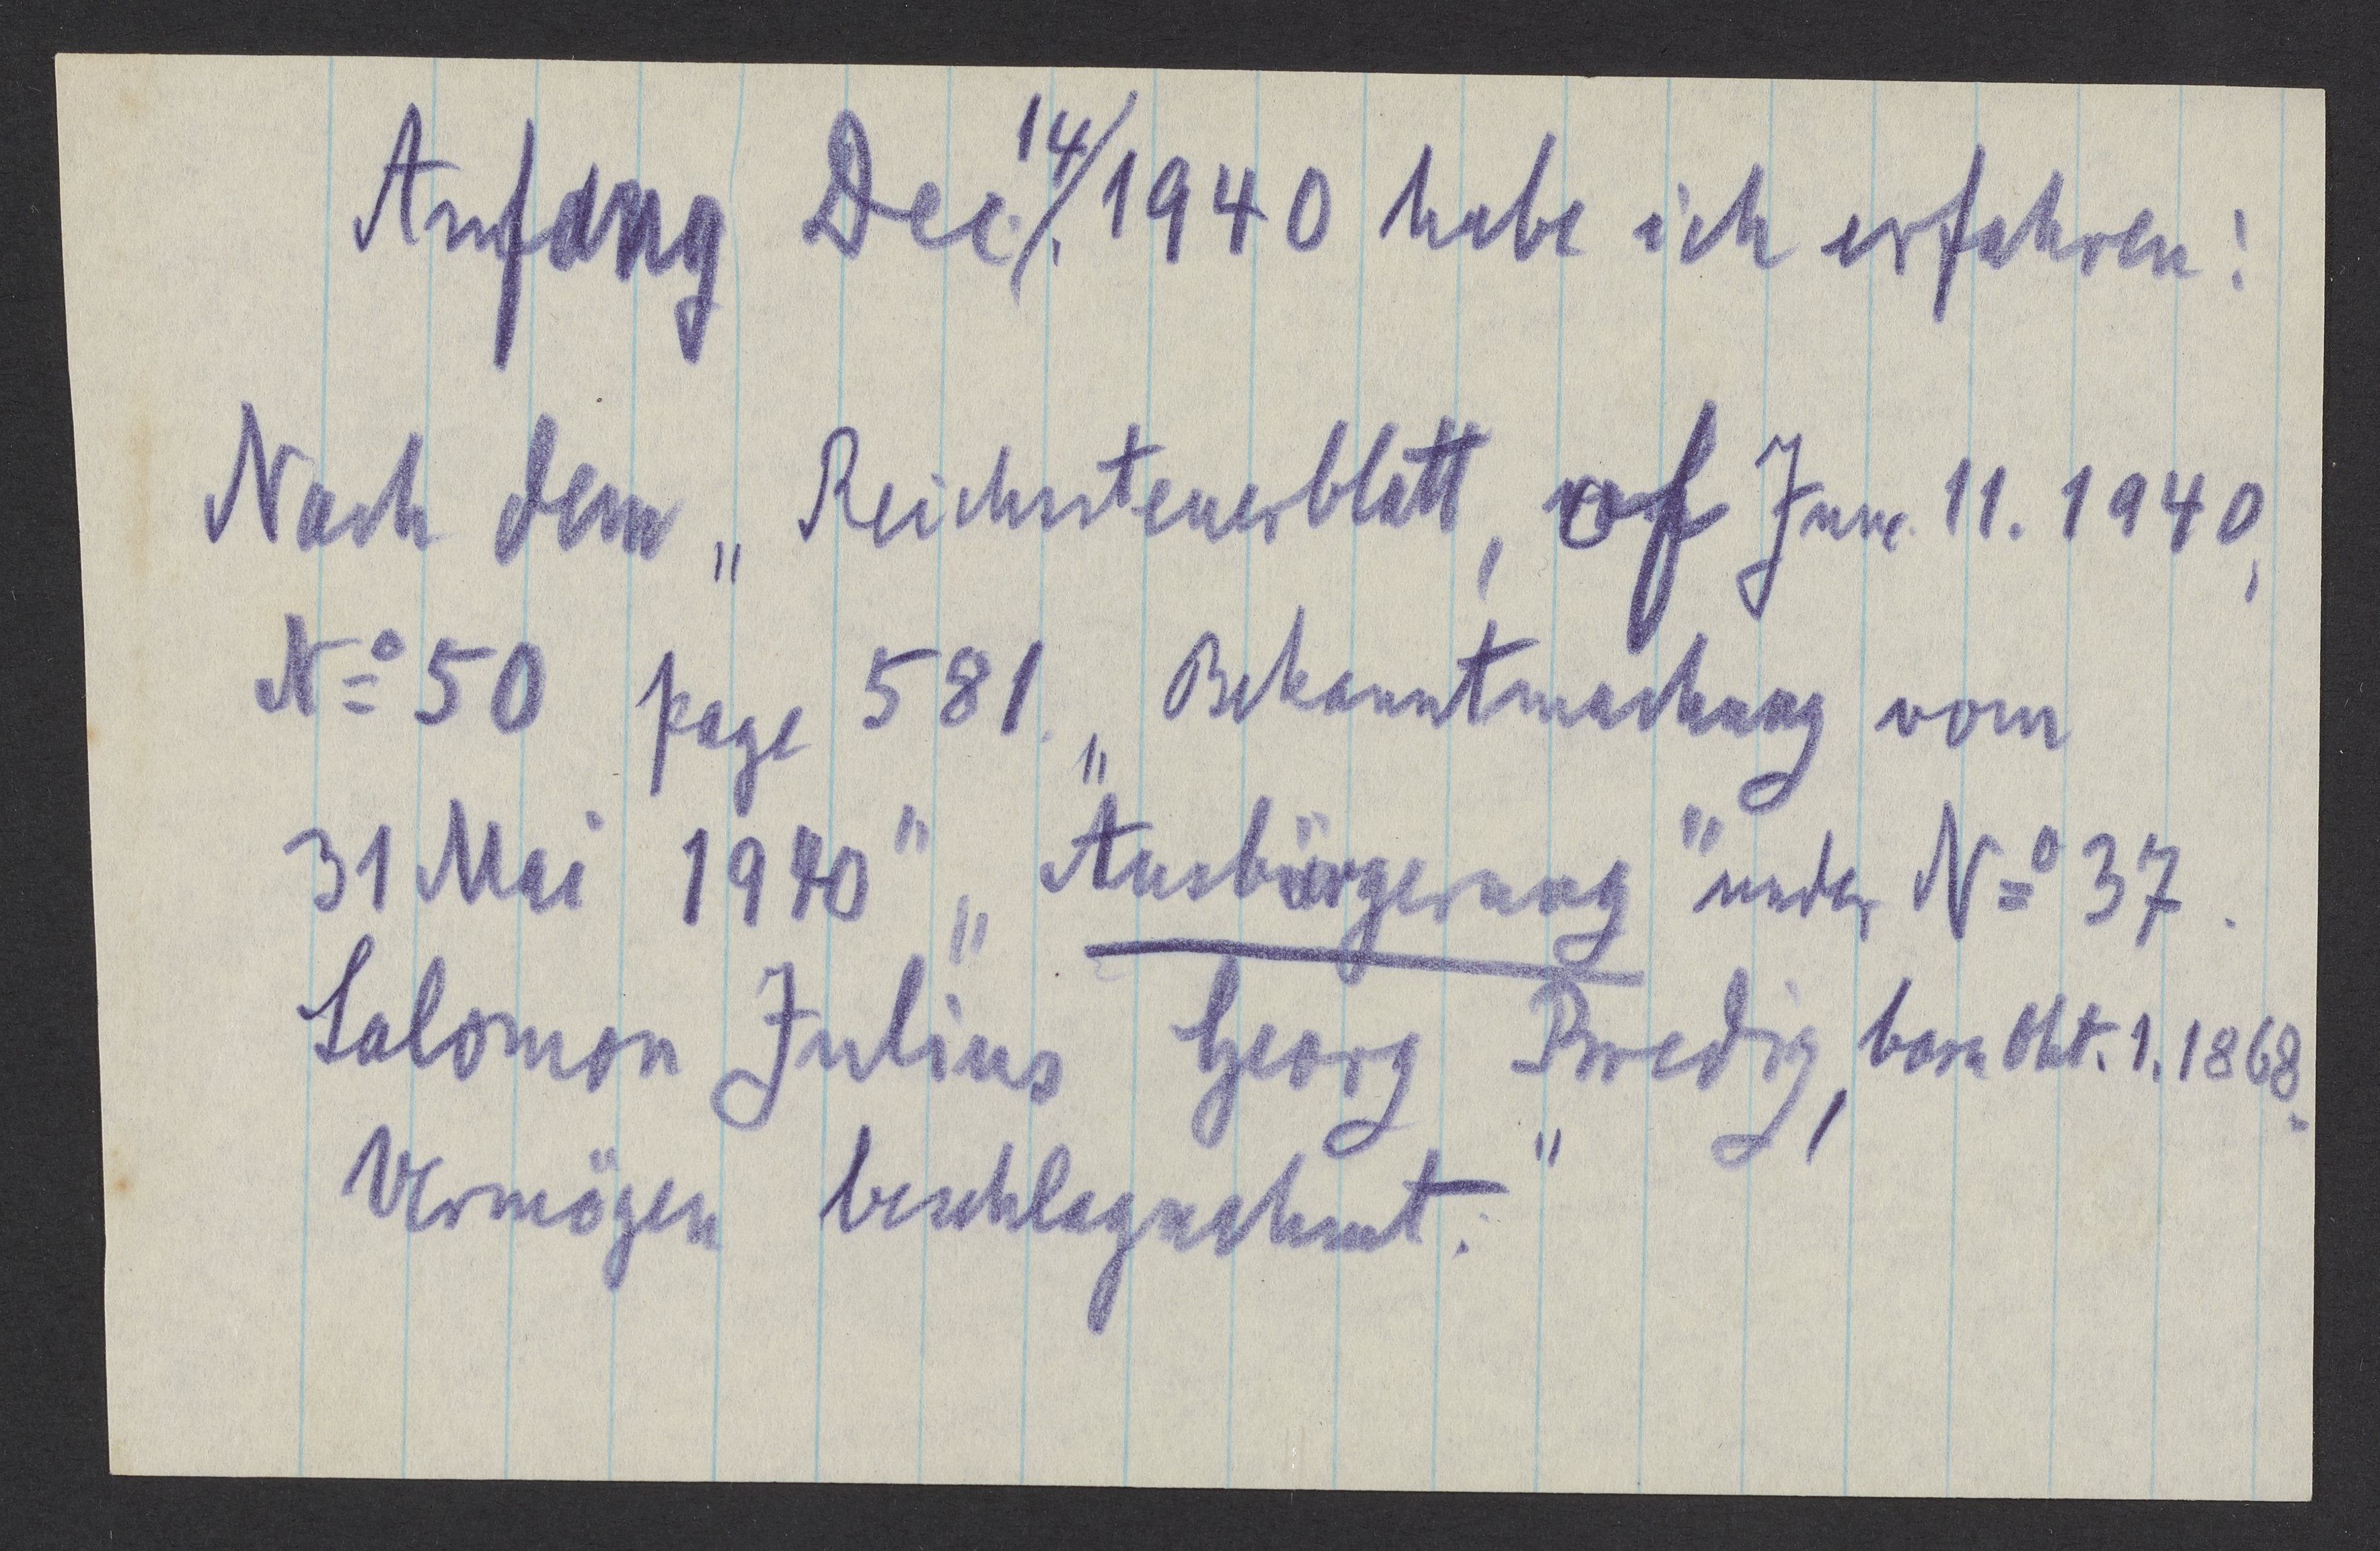 Anfang Dec. 14/ 1940 habe ich erfahren:
Nach dem „Reichssteuerblatt, of June 11. 1940,
No 50 page 581. „Bekanntmachung vom
31 Mai 1940" „Ausbürgerung" under No 37.
Salomon Julius Georg Bredig, born Okt. 1. 1868.
Vermögen beschlagnahmt."